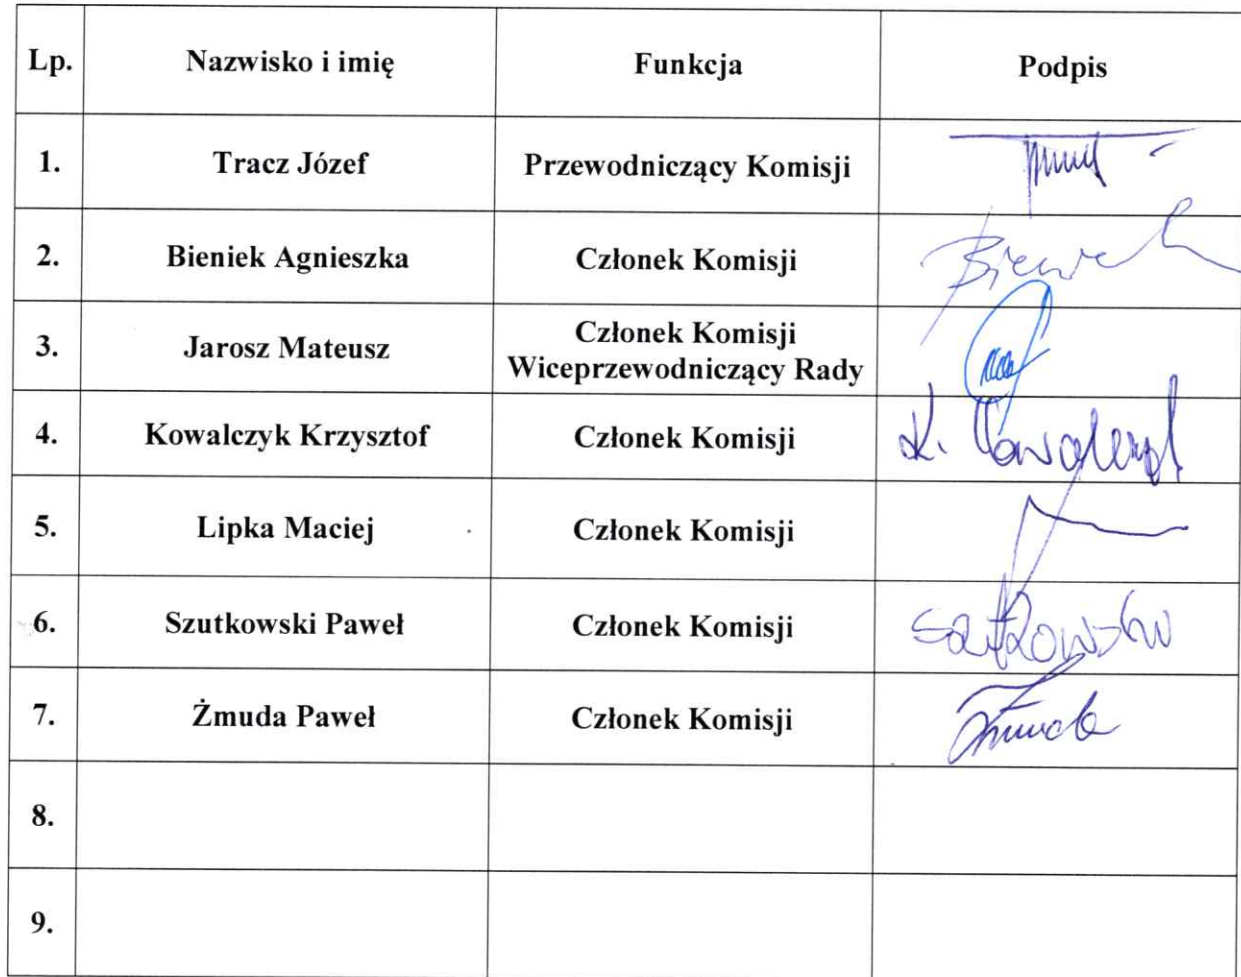 Lp. Nazwisko i imię Funkcja Podpis
1. Tracz Józef Przewodniczący Komisji
2. Bieniek Agnieszka Członek Komisji Bieniek
3. Jarosz Mateusz Członek Komisji
Wiceprzewodniczący Rady
4. Kowalczyk Krzysztof Członek Komisji K. Kowalczyk
5. Lipka Maciej Członek Komisji
6. Szutkowski Paweł Członek Komisji Szutkowski
7. Żmuda Paweł Członek Komisji Żmuda
8.
9.